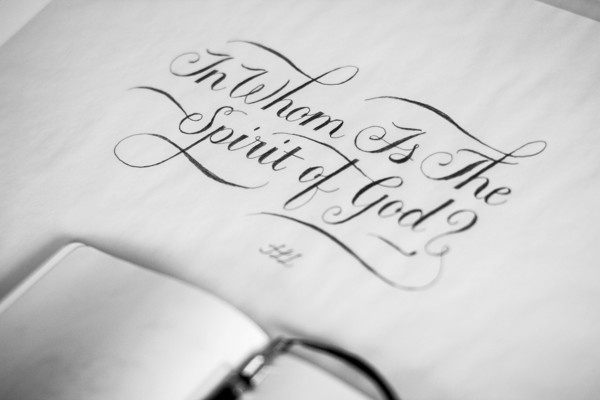 In Whom Is The
Spirit of God?